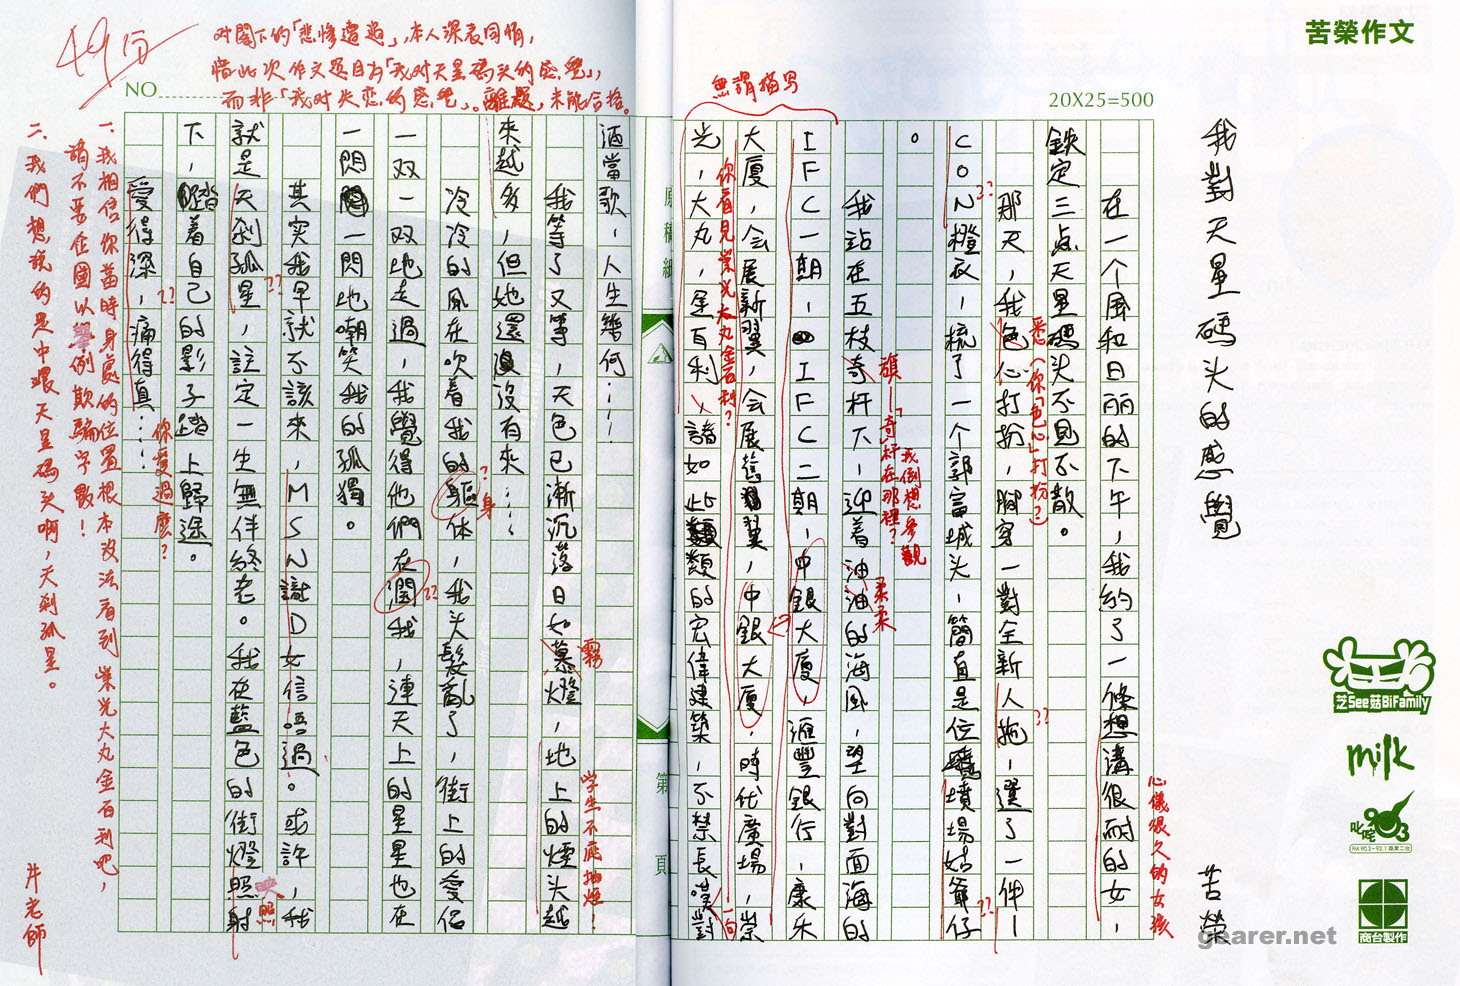 苦榮作文
20X25=500
我對天星碼头的感覺
苦榮
在一个風和日丽的下午，我約了一條想溝很耐的女，
鉄定三点天星碼头不見不散。
那天，我色心打扮，脚穿一對全新人拖，選了一件I
CON橙衣，梳了一个郭富城头，簡直是位墳場姑爺仔
。
我站在五枝奇杆下，迎着油油的海風，望向對面海的
IFC一期，IFC二期，中銀大厦，滙豐銀行，康乐
大厦，会展新翼，会展舊翼，中銀大厦，時代廣場，崇
光，大丸，金百利，諸如此類的宏偉建築，不禁長嘆對
酒當歌，人生幾何……
我等了又等，天色已漸沉落日如慕燈，地上的煙头越
來越多，但她還没有來……
冷冷的風在吹着我的軀体，我头髮亂了，街上的愛侣
一双一双地走過，我覺得他們在潤我，連天上的星星也在
一閃一閃地嘲笑我的孤獨。
其实我早就不該來，MSN識D女信唔過。或許，我
就是天刹孤星，註定一生無伴終老。我在藍色的街燈照射
下，踏着自己的影子踏上歸途。
愛得深，痛得真……
心儀很久的女孩
??
悉（你「色心」打扮？）
??
??
旗—「奇」杆在那裡？
我倒想參觀
柔柔
無謂描写
你看見崇光大丸金百利？
一向
NO
原稿紙
第
頁
49分
对閣下的「悲慘遭遇」，本人深表同情，
惜此次作文題目为「我对天星碼头的感覺」，
而非「我对失恋的感覺」。離題，未能合格。
霧
学生不應抽煙！
?身
??
??
映照
??
你愛過麽？
一.我相信你當時身處的位置根本沒法看到崇光大丸金百利吧，
請不要企圖以舉例欺騙字數！
二.我們想説的是中環天星碼头啊，天刹孤星。
芝See菇BiFamily
milk
叱咤903
商台製作
gearer.net